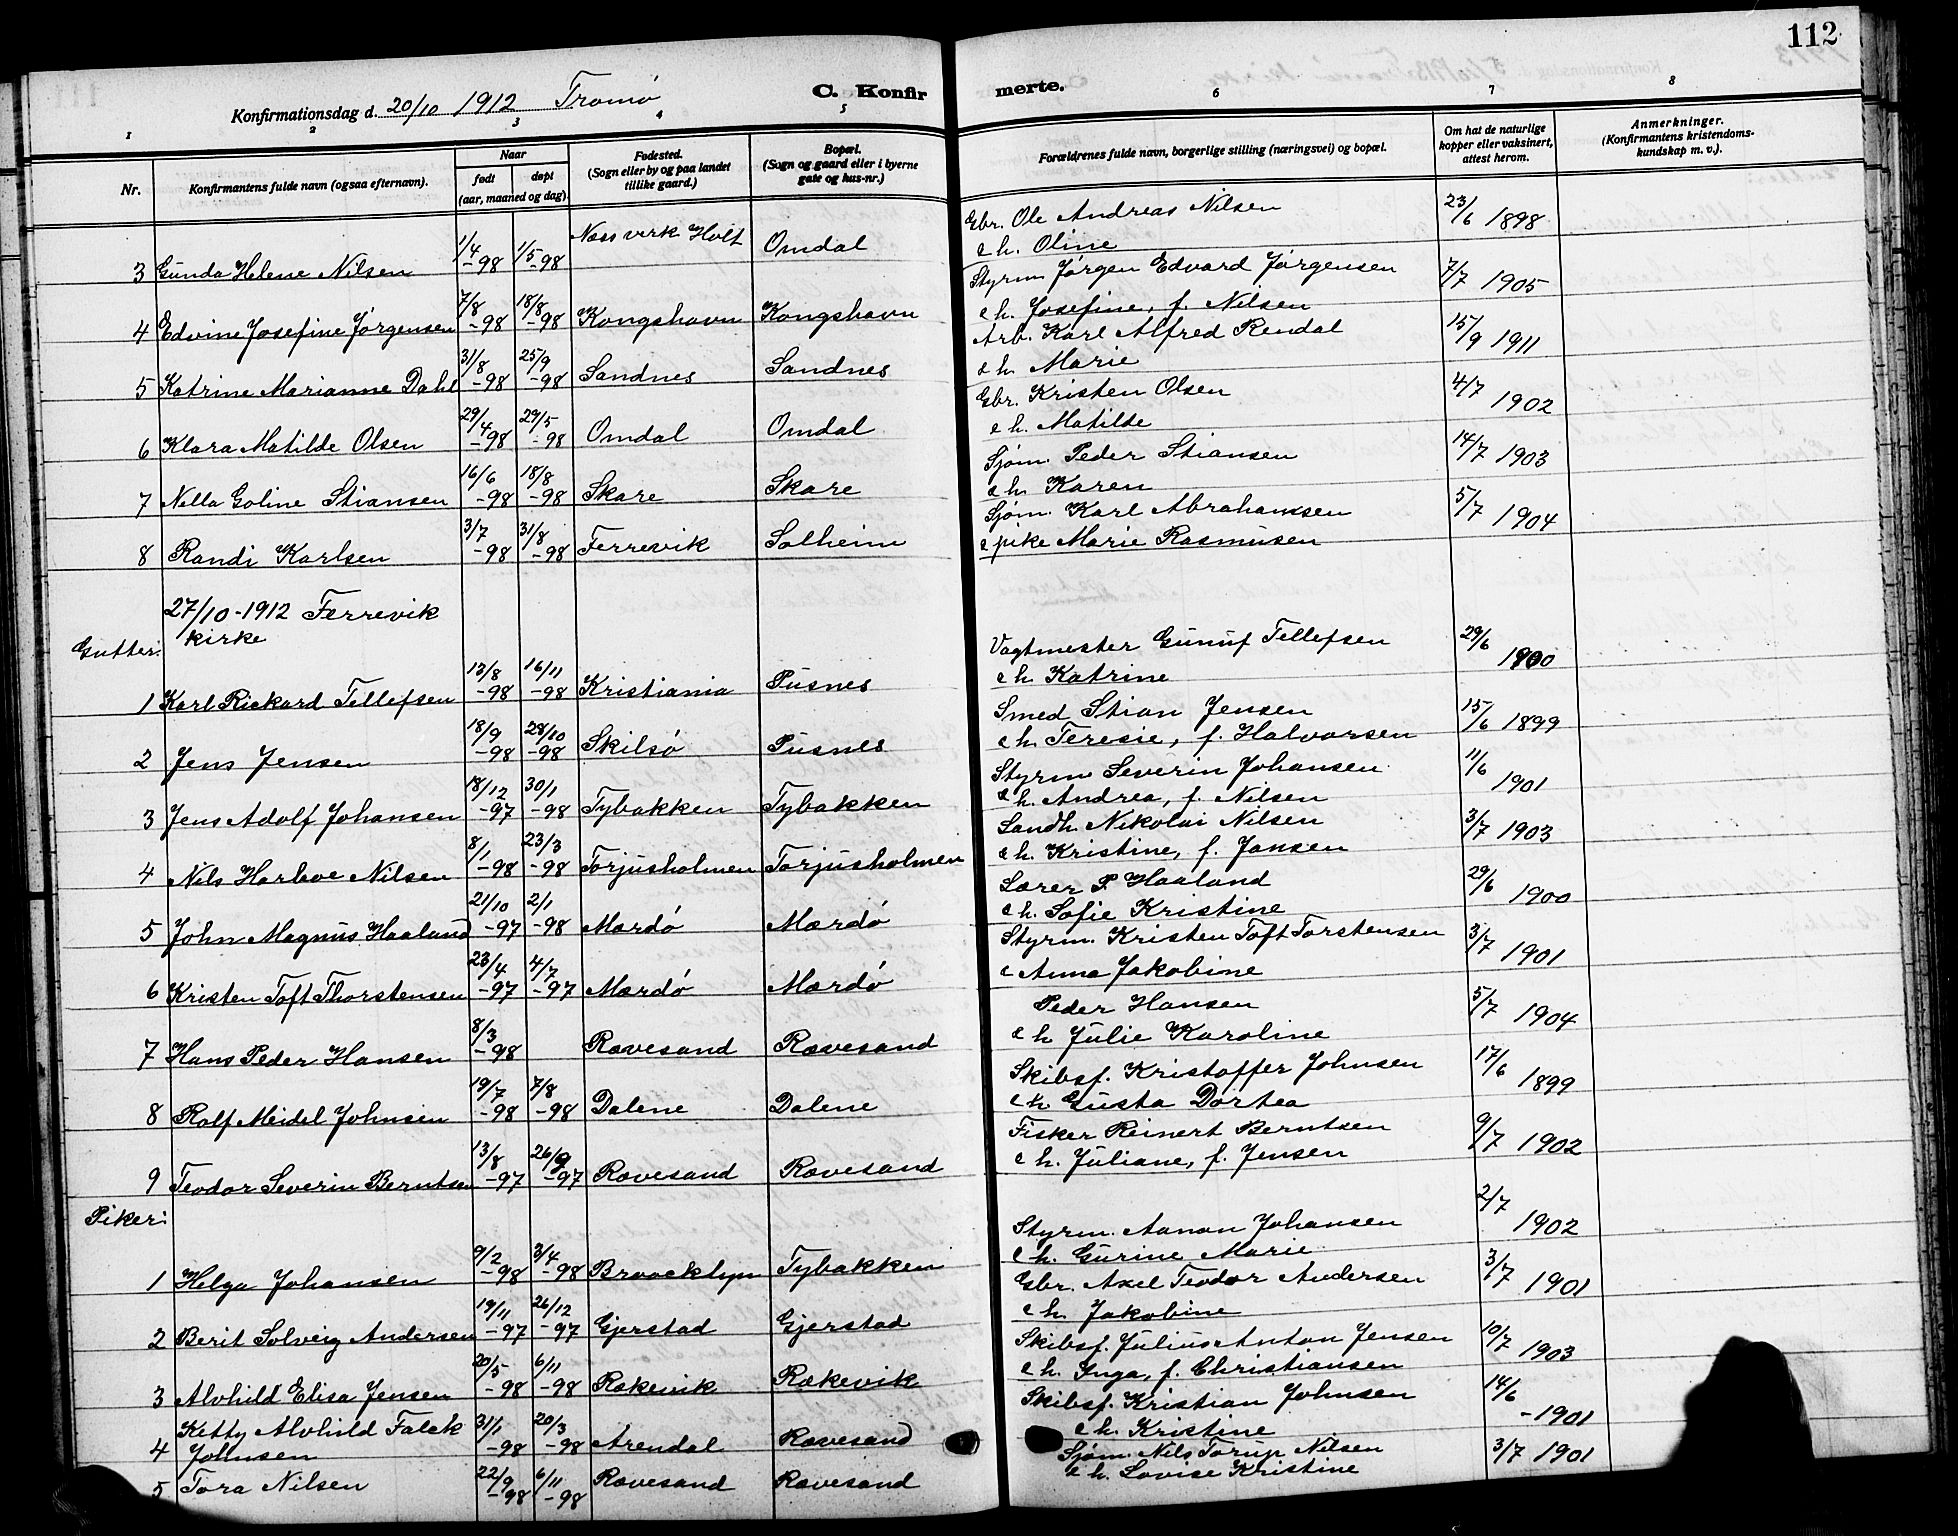 112
Konfirmationsdag d. 20/10 1912 Tromø
C. Konfirmerte.
1 2 3 4 5 6 7 8
Nr.
Konfirmantens fulde navn (ogsaa efternavn).
Naar
født
døpt
(aar, maaned og dag)
Fødested.
(Sogn eller by og paa landet
tillike gaard.)
Bopæl.
(Sogn og gaard eller i byerne
gate og hus-nr.)
Forældrenes fulde navn, borgerlige stilling (næringsvei) og bopæl.
Om hat de naturlige
kopper eller vaksinert,
attest herom.
Anmerkninger.
(Konfirmantens kristendoms-
kundskap m. v.).
3 Gunda Helene Nilsen 1/4 -98 1/5 -98 Næs verk Holt Omdal Gbr. Ole Andreas Nilsen 23/6 1898
e h. Oline
4 Edvine Josefine Jørgensen 7/8 -98 18/8 -98 Kongshavn Kongshavn Styrm Jørgen Edvard Jørgensen 7/7 1905
e h. Josefine, f. Nilsen
5 Katrine Marianne Dahl 31/8 -98 25/9 -98 Sandnes Sandnes Arb. Karl Alfred Rendal 15/9 1911
e h. Marie
6 Klara Matilde Olsen 29/4 -98 29/5 -98 Omdal Omdal Gbr. Kristen Olsen 4/7 1902
e h. Matilde
7 Nella Goline Stiansen 16/6 -98 18/8 -98 Skare Skare Sjøm. Peder Stiansen 14/7 1903
e h. Karen
8 Randi Karlsen 3/7 -98 31/8 -98 Færrevik Solheim Sjøm. Karl Abrahamsen 5/7 1904
e pike Marie Rasmusen
27/10-1912 Færrevik
kirke
Gutter:
1 Karl Rickard Tellefsen 13/8 -98 16/11 -98 Kristiania Pusnes Vagtmester Gunuf Tellefsen 29/6 1900
e h. Katrine
2 Jens Jensen 18/9 -98 28/10 -98 Skilsø Pusnes Smed Stian Jensen 15/6 1899
e h. Teresie, f. Halvorsen
3 Jens Adolf Johansen 18/12 -97 30/1 -98 Tybakken Tybakken Styrm Severin Johansen 11/6 1901
e h. Andrea, f. Nilsen
4 Nils Harboe Nilsen 8/1 -98 23/3 -98 Torjusholmen Torjusholmen Landh. Nikolai Nilsen 3/7 1903
e h. Kristine, f. Jansen
5 John Magnus Haaland 21/10 -97 2/1 -98 Mærdø Mærdø Lærer P. Haaland 29/6 1900
e h. Sofie Kristine
6 Kristen Toft Thorstensen 23/4 -97 4/7 -97 Mærdø Mærdø Styrm. Kristen Toft Torstensen 3/7 1901
e Anna Jakobine
7 Hans Peder Hansen 8/3 -98 Rævesand Rævesand Peder Hansen 5/7 1904
e h Julie Karoline
8 Rolf Meidel Johnsen 19/7 -98 7/8 -98 Dalene Dalene Skibsf. Kristoffer Johnsen 17/6 1899
e h Gusta Dortea
9 Teodor Severin Berntsen 13/8 -97 26/9 -97 Rævesand Rævesand Fisker Reinert Berntsen 9/7 1902
e h. Juliane, f. Jensen
Piker:
1 Helga Johansen 9/2 -98 3/4 -98 Broocklyn Tybakken Styrm. Aanon Johansen 2/7 1902
e h. Gurine Marie
2 Berit Solveig Andersen 19/11 -97 26/12 -97 Gjerstad Gjerstad Gbr. Axel Teodor Andersen 3/7 1901
e h. Jakobine
3 Alvhild Elisa Jensen 20/5 -98 6/11 -98 Rækevik Rækevik Skibsf. Julius Anton Jensen 10/7 1903
e h. Inga, f. Christiansen
4 Ketty Alvhild Falck
Johnsen 31/1 -98 20/3 -98 Arendal Rævesand Skibsf. Kristian Johnsen 14/6 -1901
e h. Kristine
5 Tora Nilsen 22/9 -98 6/11 -98 Rævesand Rævesand Sjøm. Nils Torup Nilsen 3/7 1901
e h. Lovise Kristine